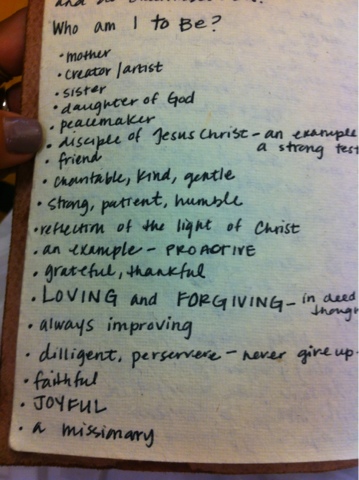 Who am I to Be?
• mother
• creator/artist
• sister
• daughter of God
• peacemaker
• disciple of Jesus Christ - an example
a strong test
• friend
• charitable, kind, gentle
• strong, patient, humble
• reflection of the light of Christ
• an example - PROACTIVE
• grateful, thankful
• LOVING and FORGIVING - in deed
though
• always improving
• dilligent, perservere - never give up
• faithful
• JOYFUL
• a missionary